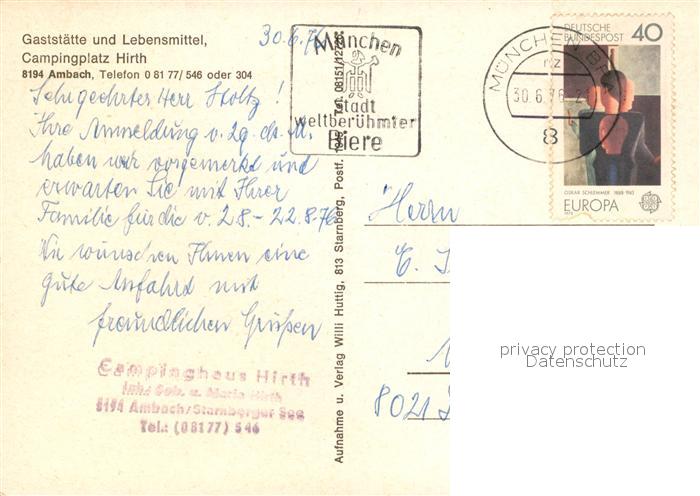 Gaststätte und Lebensmittel,
Campingplatz Hirth
8194 Ambach, Telefon 0 81 77/546 oder 304
30.6.76
Sehr geehrter Herr Stoltz!
Ihre Anmeldung v. 29. ds. M.
haben wir vorgemerkt und
erwarten Sie mit Ihrer
Familie für die v. 2.8.–22.8.76
Wir wünschen Ihnen eine
gute Anfahrt mit
freundlichen Grüßen
Campinghaus Hirth
Inh: Seb. u. Maria Hirth
8194 Ambach/Starnberger See
Tel.: (08177) 546
Aufnahme u. Verlag Willi Huttig, 813 Starnberg, Postf. Tel. 08151/12
München
Stadt
weltberühmter
Biere
MÜNCHEN
30.6.76
8
DEUTSCHE
BUNDESPOST 40
OSKAR SCHLEMMER 1888-1943
EUROPA
1975
Herrn
8021
privacy protection
Datenschutz